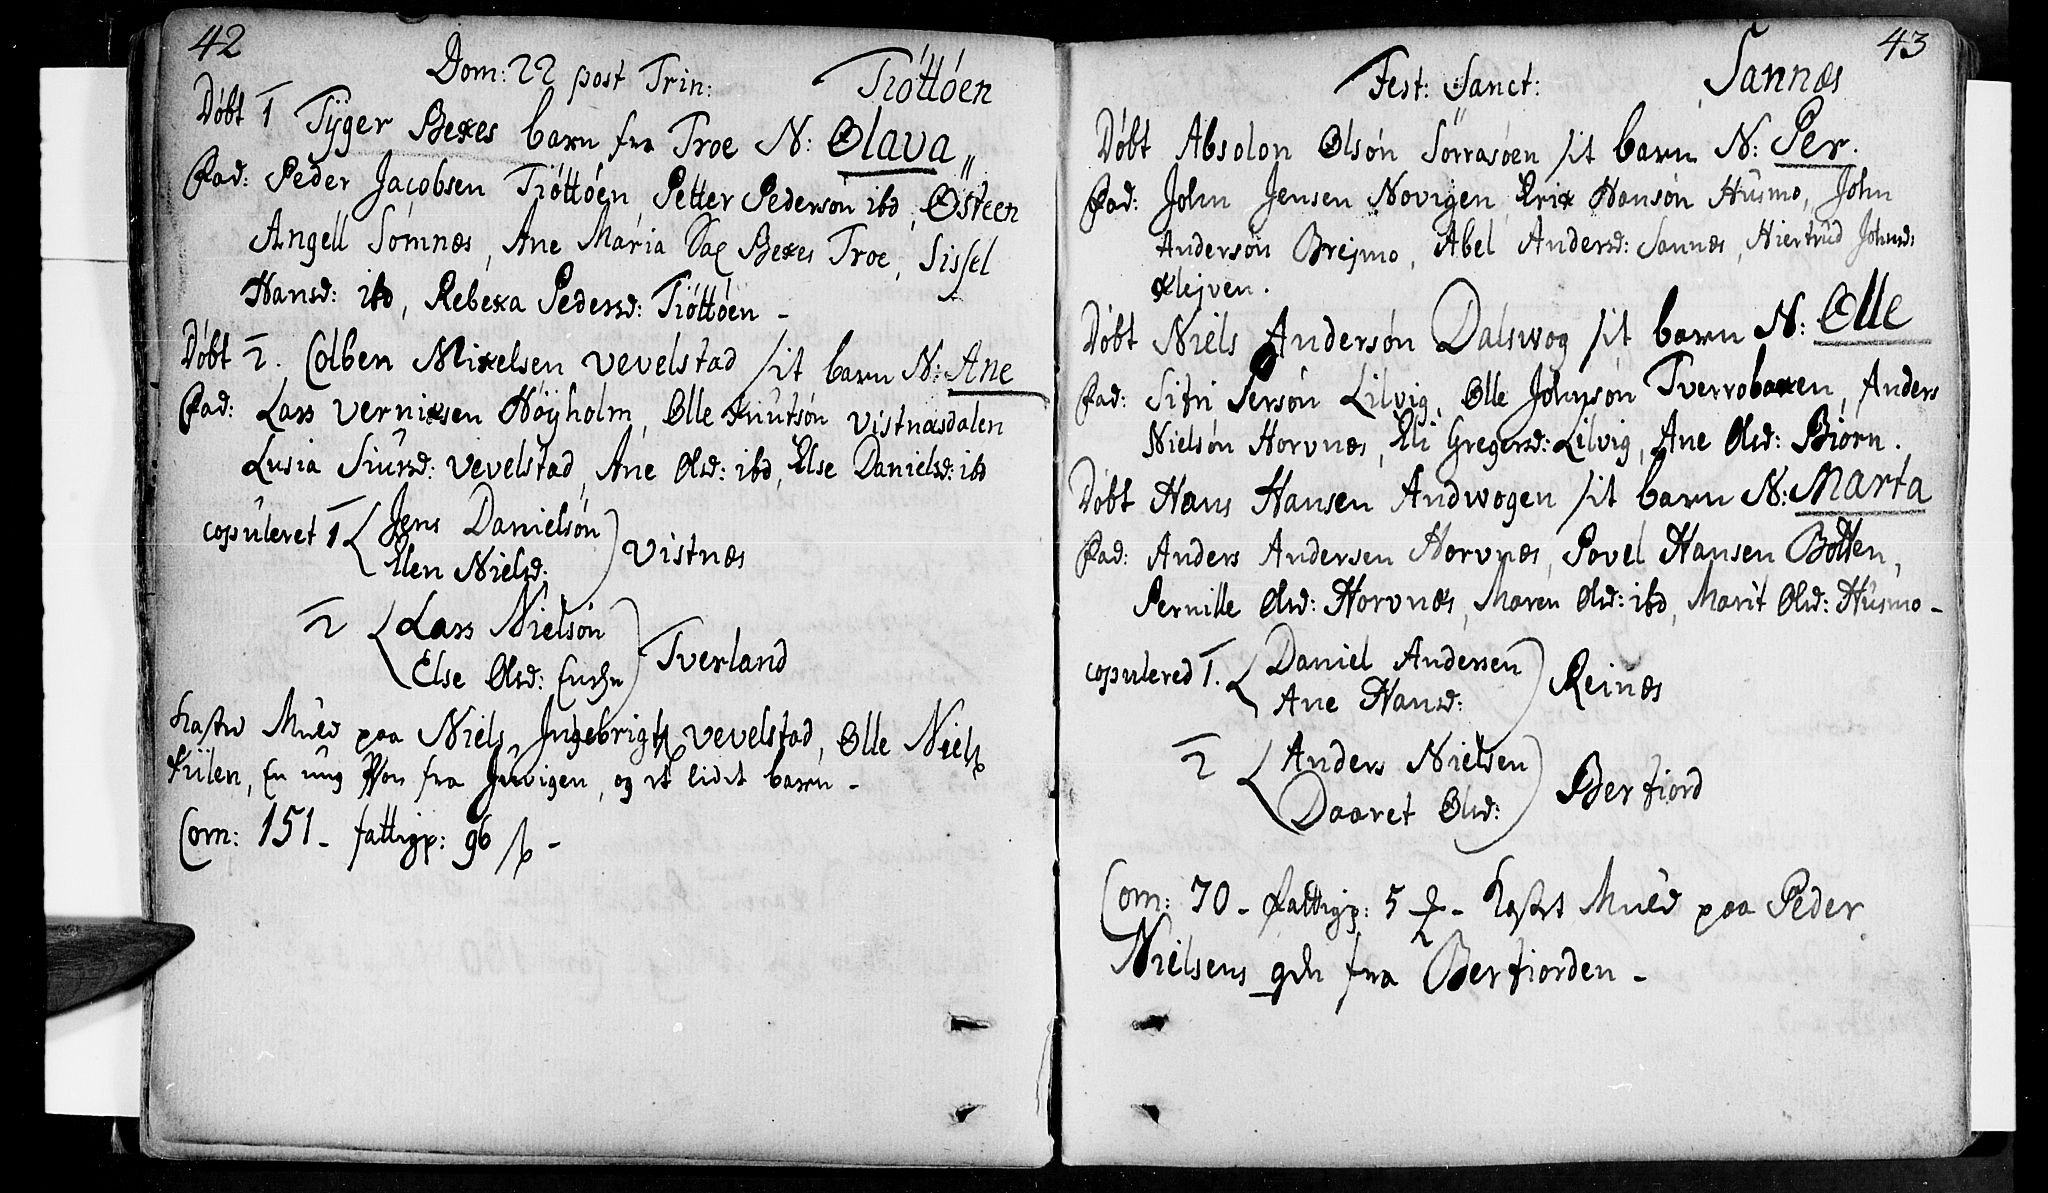 42
Dom: 22 post Trin: Tióttóen
Dóbt 1 Tÿger Bexes barn fra Troe N: Olava
Fad: Peder Jacobsen Tióttóen Petter Pedersón ibd, Østeen
Angell Sómnæs, Ane Maria Bexes Troe, Sissel
Hansd: ibd, Rebexa Pedersd: Tióttóen -
Dóbt 2. Colben Mixelsen Vevelstad sit barn N: Ane
Fad: Lars Vernixsen Hóÿholm, Olle Knutsón Vistnæsdalen
Lusia Siursd: Vevelstad, Ane Olsd: ibd, Else Danielsd: ibd
copuleret 1 Jens Danielsón
Elen Nielsd: Vistnæs
2 Lars Nielsón
Else Olsd: Tverland
Kastet Muld paa Niels Ingebrigts Vevelstad, Olle Niels
En ung fra, og et lidet barn -
Com: 151 - fattigp: 96 ß -
43
Fest: Sanct: Sannæs
Dóbt Absolon Olsón Sórrasóen sit barn N: Per.
Fad: John Jensen Novigen, Erix Hansón Husmo, John
Andersón Brejmo, Abel Andersd: Sannæs, Hiertrud Johnsd:
xlejven.
Dóbt Niels Andersón Dalswog sit barn N: Olle
Fad: Sifri Persón Lilvig, Olle Johnsón Tverrobaxen, Anders
Nielsón Horvnæs, Eli Gregersd: Lilvig, Ane Olsd: Biórn.
Dóbt Hans Hansen Andwogen sit barn N: Marta
Fad: Anders Andersen Horvnæs, Povel Hansen Botten,
Pernille Olsd: Horvnæs, Maren Olsd: ibd, Marit Olsd: Husmo -
copulered 1. Daniel Andersen
Ane Hansd: Reinæs
2 Anders Nielsen
Daaret Olsd: Berfiord
Com: 70 - fattigp: 5 - Kastet Muld paa Peder
Nielsens fra Berfiorden -